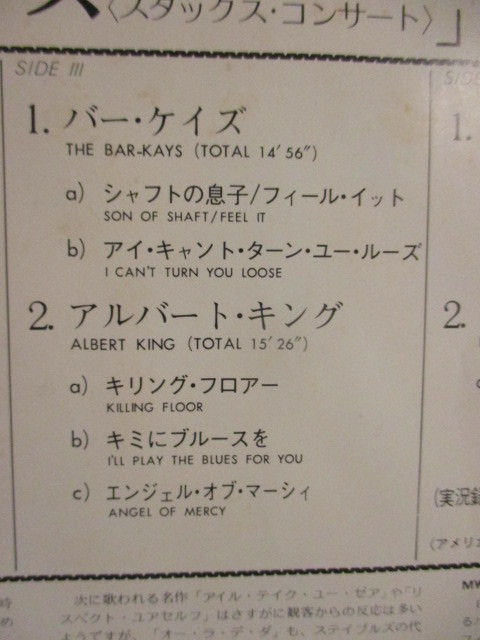 〈スタックス・コンサート〉」
SIDE III
1. バー・ケイズ
THE BAR-KAYS (TOTAL 14′56″)
a) シャフトの息子/フィール・イット
SON OF SHAFT/FEEL IT
b) アイ・キャント・ターン・ユー・ルーズ
I CAN'T TURN YOU LOOSE
2. アルバート・キング
ALBERT KING (TOTAL 15′26″)
a) キリング・フロアー
KILLING FLOOR
b) キミにブルースを
I'LL PLAY THE BLUES FOR YOU
c) エンジェル・オブ・マーシィ
ANGEL OF MERCY
1.
2.
(実況録
(アメリ
MW
時
め
次に歌われる名作「アイル・テイク・ユー・ゼア」や「リ
スペクト・ユアセルフ」はさすがに観客からの反応は多い
ようですが、「オー・ラ・デ・ダ」も、ステイプルズの代